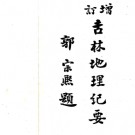 增訂吉林地理紀要
郭宗熙題